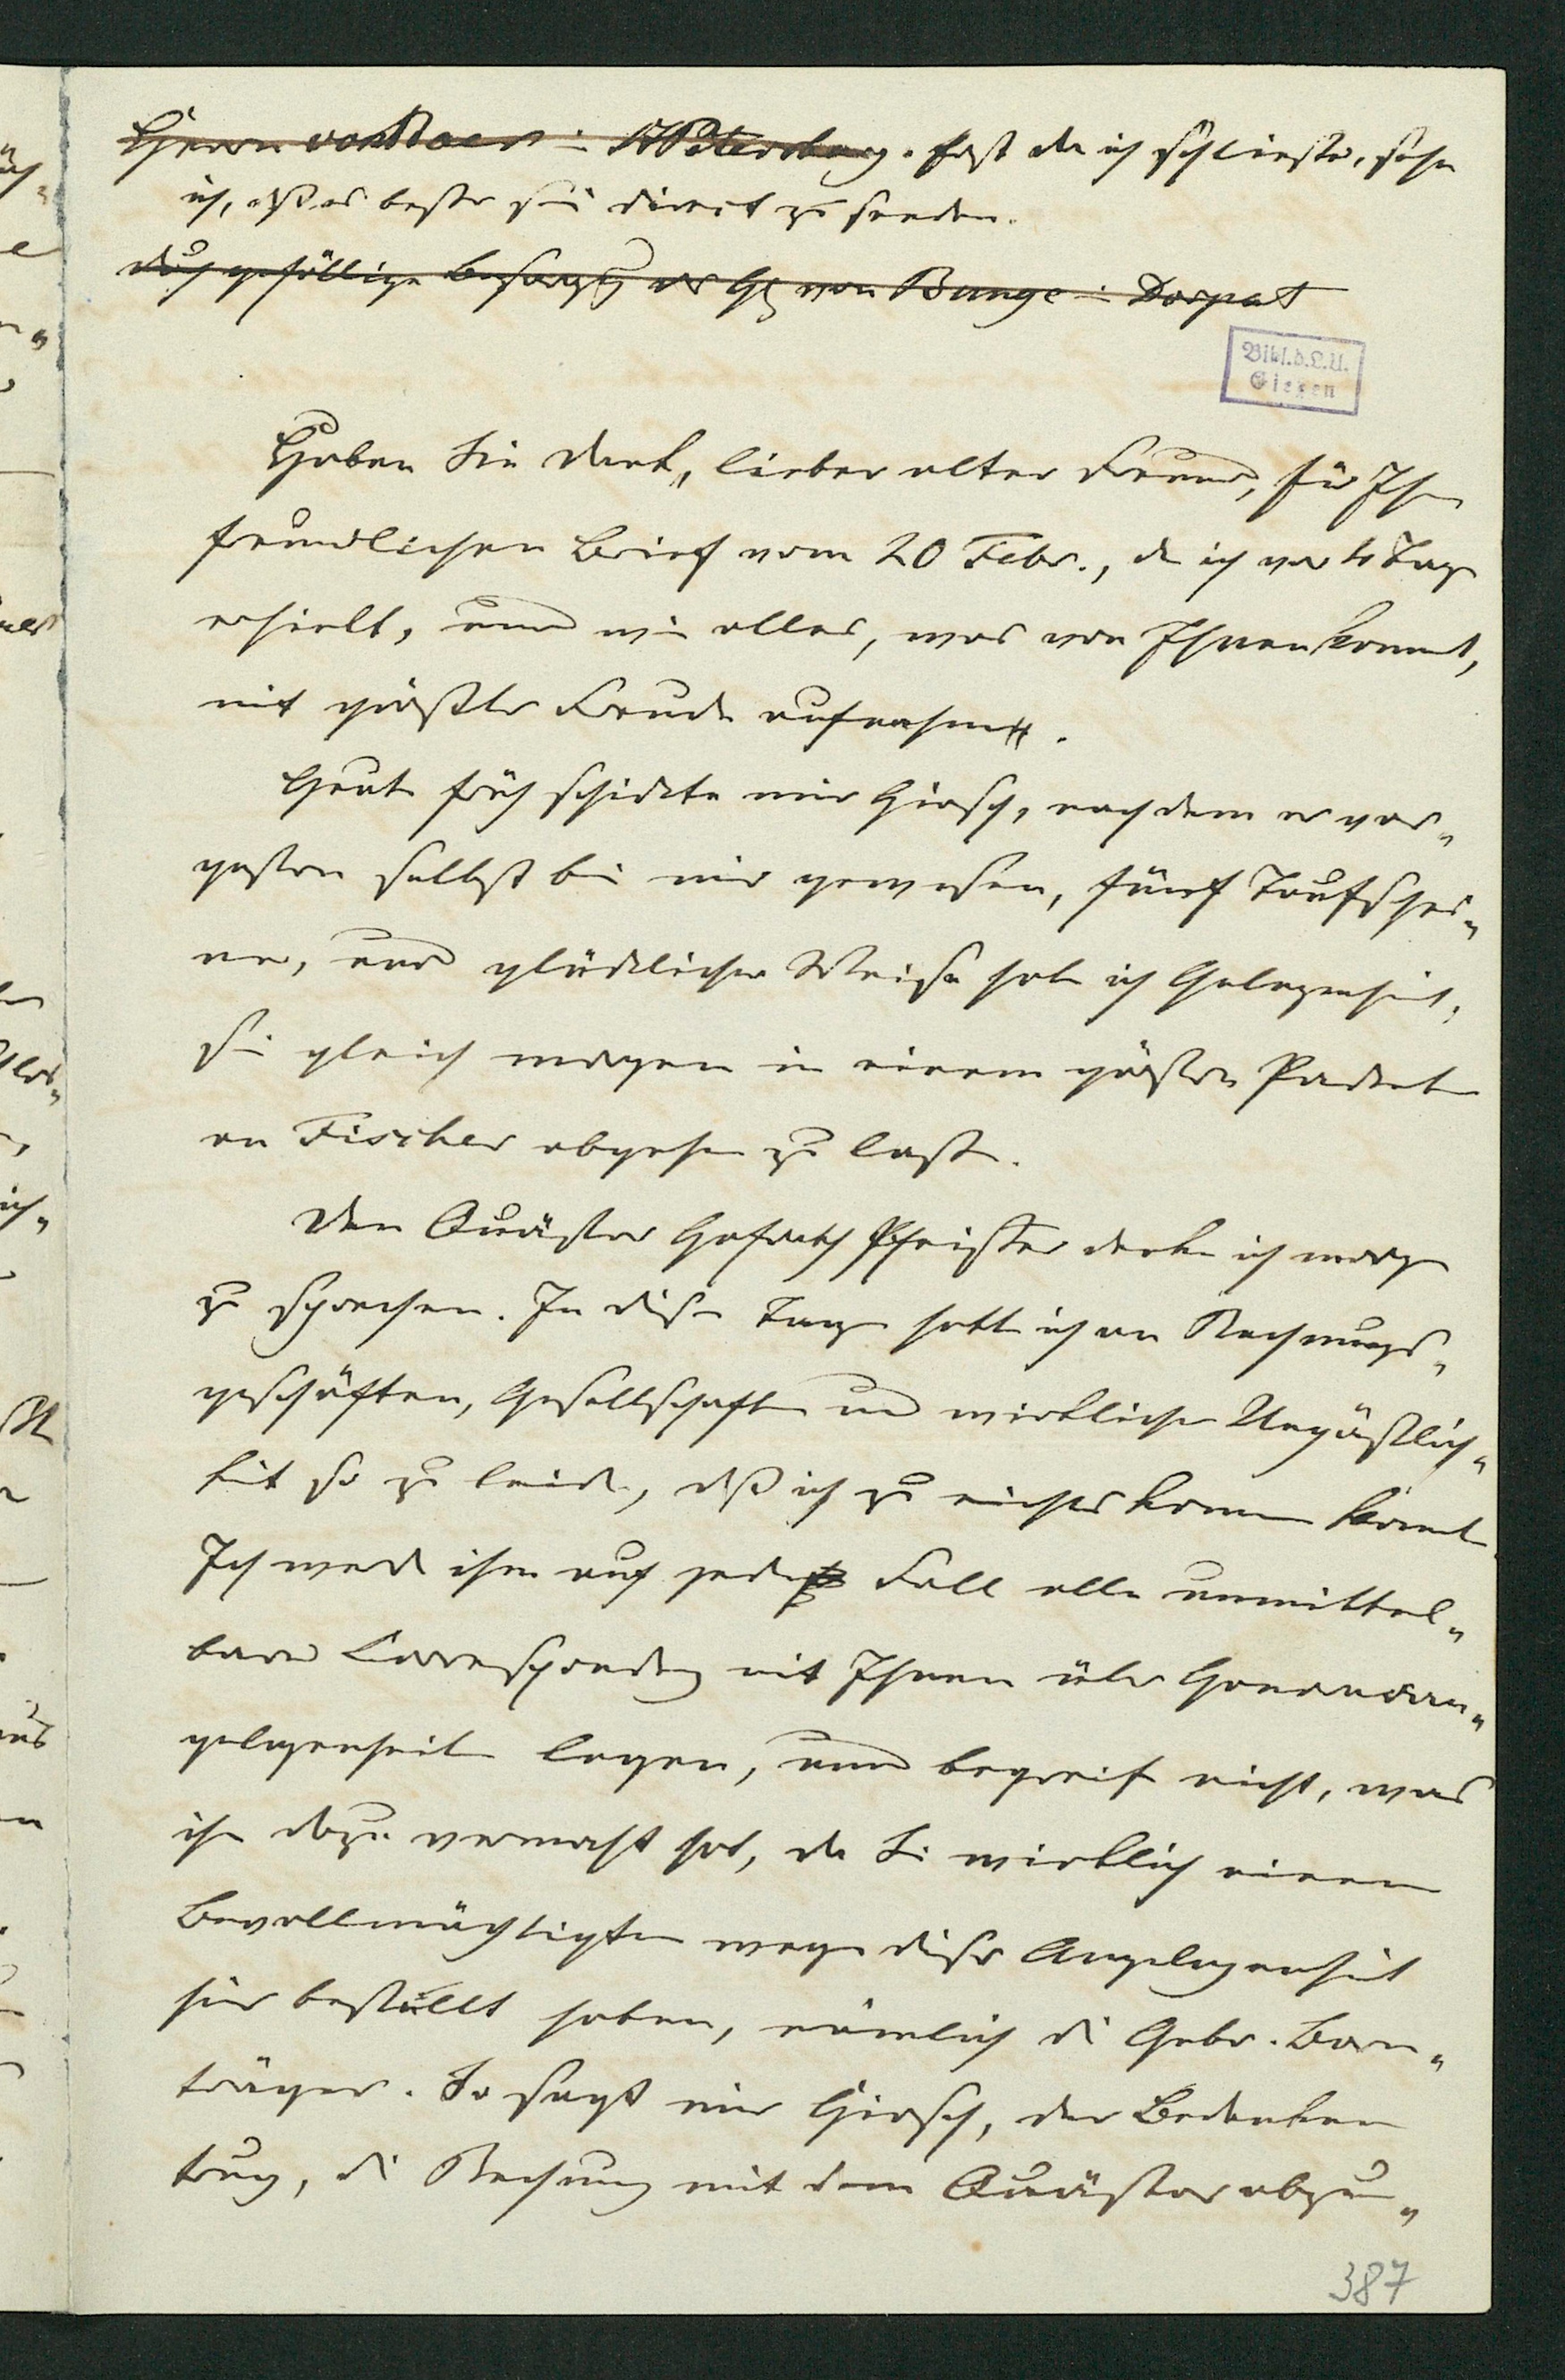 Herrn von Baer in St Petersburg. Erst da ich schließe, sehe
ich, daß es besser sie direct zu senden.
durch gefällige Besorgung des H von Bunge in Dorpat
Bibl. d. L. U.
Gießen
Haben Sie Dank, lieber alter Freund, für Ihren
freundlichen Brief vom 20 Febr., den ich vor 4 Tagen
erhielt, und wie alles, was von Ihnen kommt,
mit größter Freude aufnahm.
Heute früh schickte mir Hirsch, nachdem er vor-
gestern selbst bei mir gewesen, fünf Taufschei-
ne, und glücklicher Weise habe ich Gelegenheit,
sie gleich morgen in einem größeren Packete
an Fischer abgehen zu lassen.
Den Quästor Hofrath Pfeister denke ich morgen
zu sprechen. In diesen Tagen hatte ich an Rechnungs-
geschäften, Gesellschaften und wirklicher Unpäßlich-
keit so zu leiden, daß ich zu nichts kommen konnte.
Ich werde ihm auf jeden Fall alle unmittel-
bare Correspondenz mit Ihnen über Honoraran-
gelegenheiten legen, und begreife nicht, was
ihn dazu vermocht hat, da Sie wirklich einen
Bevollmächtigten wegen dieser Angelegenheit
hier bestellt haben, nämlich die Gebr. Born-
träger. So sagt mir Hirsch, der Bedenken
trug, die Rechnung mit dem Quästor abzu-
387